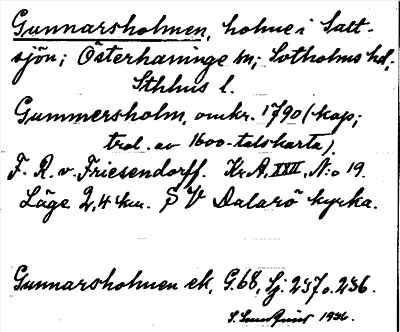 Gunnarsholmen, holme i Salt-
sjön; Österhaninge sn; Sotholms hd;
Sthlms l.
Gummersholm, omkr. 1790 (kop;
trol. av 1600-talskarta).
F. R. v. Friesendorff. Kr.A, XXII, N:o 19.
Läge 2,4 km. S V Dalarö kyrka.
Gunnarsholmen ek. G. 68, Sj. 237 o. 236.
1936.